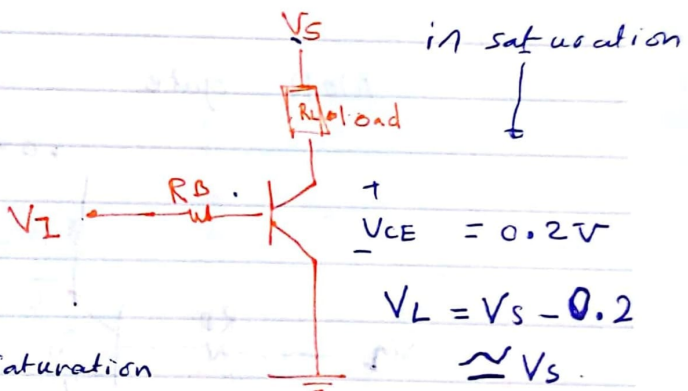 VS
in saturation
RL load
RB
VI
+
VCE = 0.2V
-
VL = VS - 0.2
≃ VS.
saturation